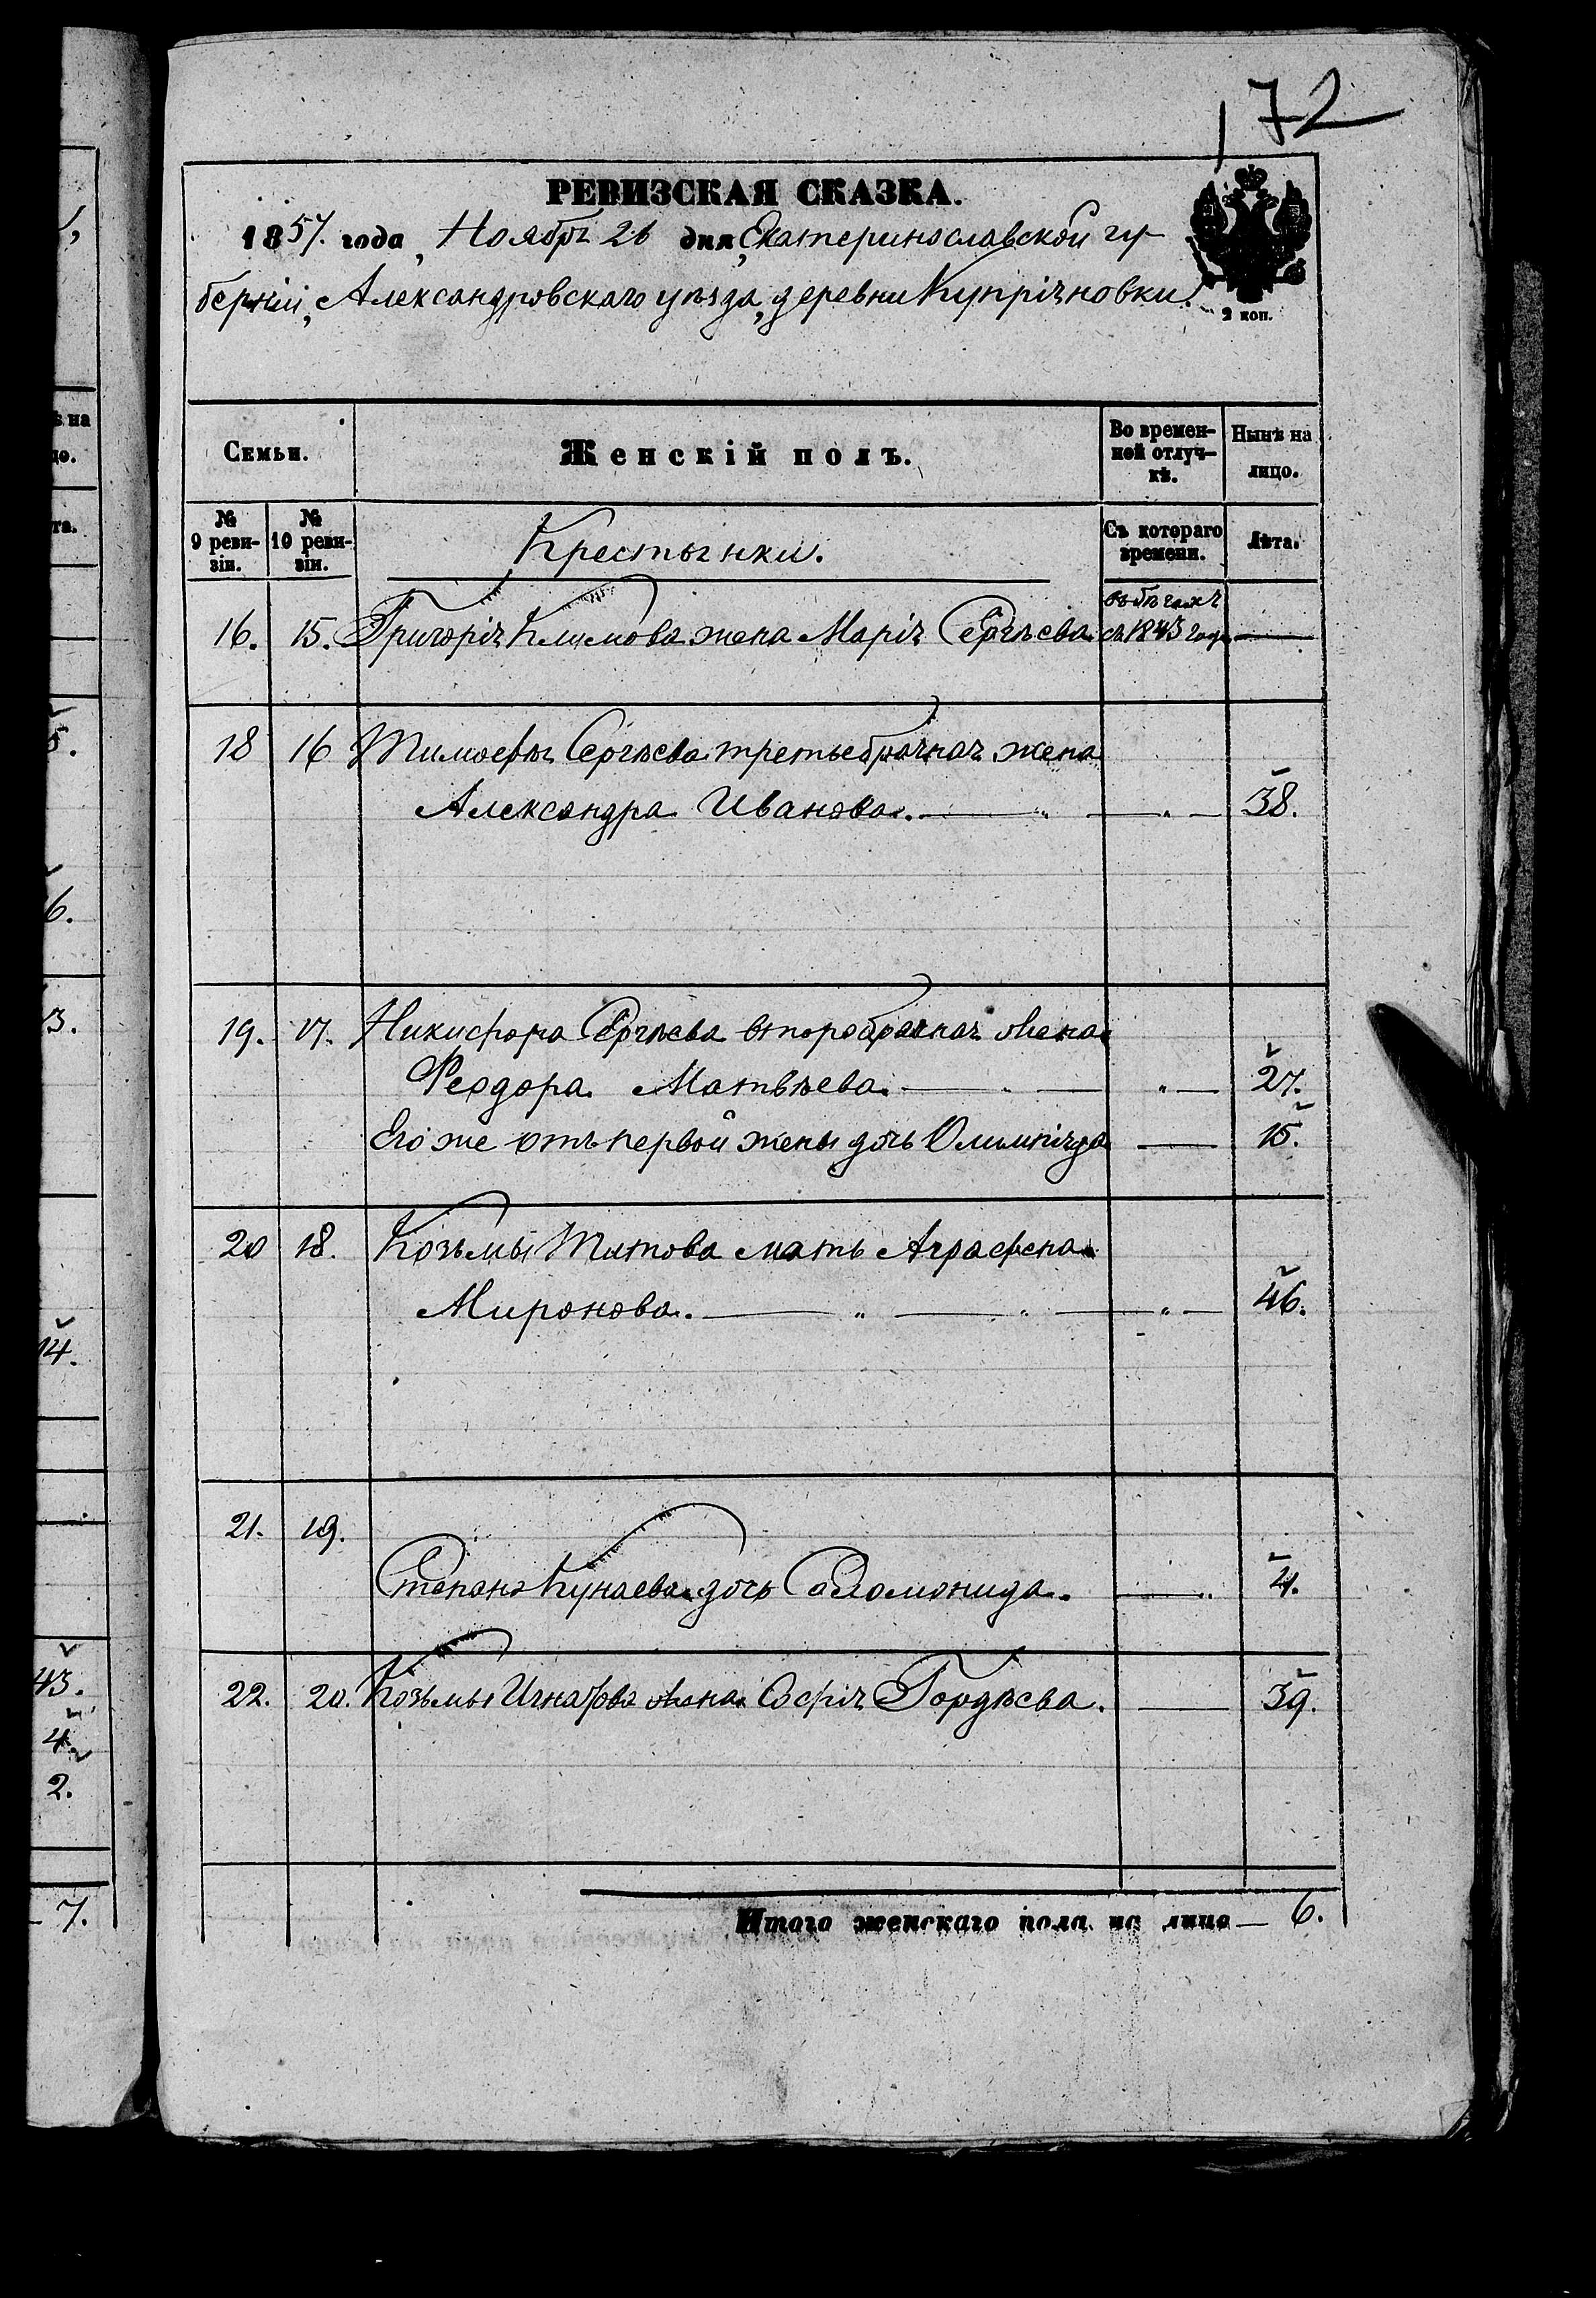 172
РЕВИЗСКАЯ СКАЗКА.
1857. года, Ноября 26 дня, Екатеринославской гу-
берніи, Александровскаго уѣзда, деревни Купріяновки.
2 коп.
Семьи.
Женскій полъ.
Во времен-
ной отлуч-
кѣ.
Нынѣ на
лицо.
№
9 реви-
зіи.
№
10 реви-
зіи.
Крестьянки.
Съ котораго
времени.
Лѣта.
въ бѣгахъ
16. 15. Григорія Климова жена Марія Сергѣева съ 1843 года —
18 16 Тимофея Сергѣева третьебрачная жена
Александра Иванова. — „ — „ — 38.
19. 17. Никифора Сергѣева второбрачная жена
Феодора Матвѣева. — „ — „ — 27.
Его же отъ первой жены дочь Олимпіяда — 15.
20 18. Козьмы Титова мать Аграфена
Миронова. — „ — „ — „ — 46.
21. 19.
Степана Кунаева дочь Соломонида. — „ 4.
22. 20. Козьмы Игнатова жена Софія Гордѣева. — 39.
Итого женскаго пола на лицо — 6.
ѣ на
цо.
та.
5.
6.
3.
14.
43.
4.
2.
7.